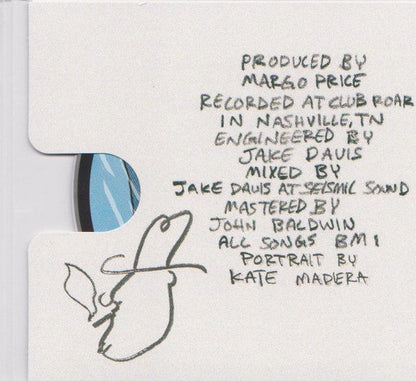 PRODUCED BY
MARGO PRICE
RECORDED AT CLUB ROAR
IN NASHVILLE, TN
ENGINEERED BY
JAKE DAVIS
MIXED BY
JAKE DAVIS AT SEISMIC SOUND
MASTERED BY
JOHN BALDWIN
ALL SONGS BMI
PORTRAIT BY
KATE MADERA